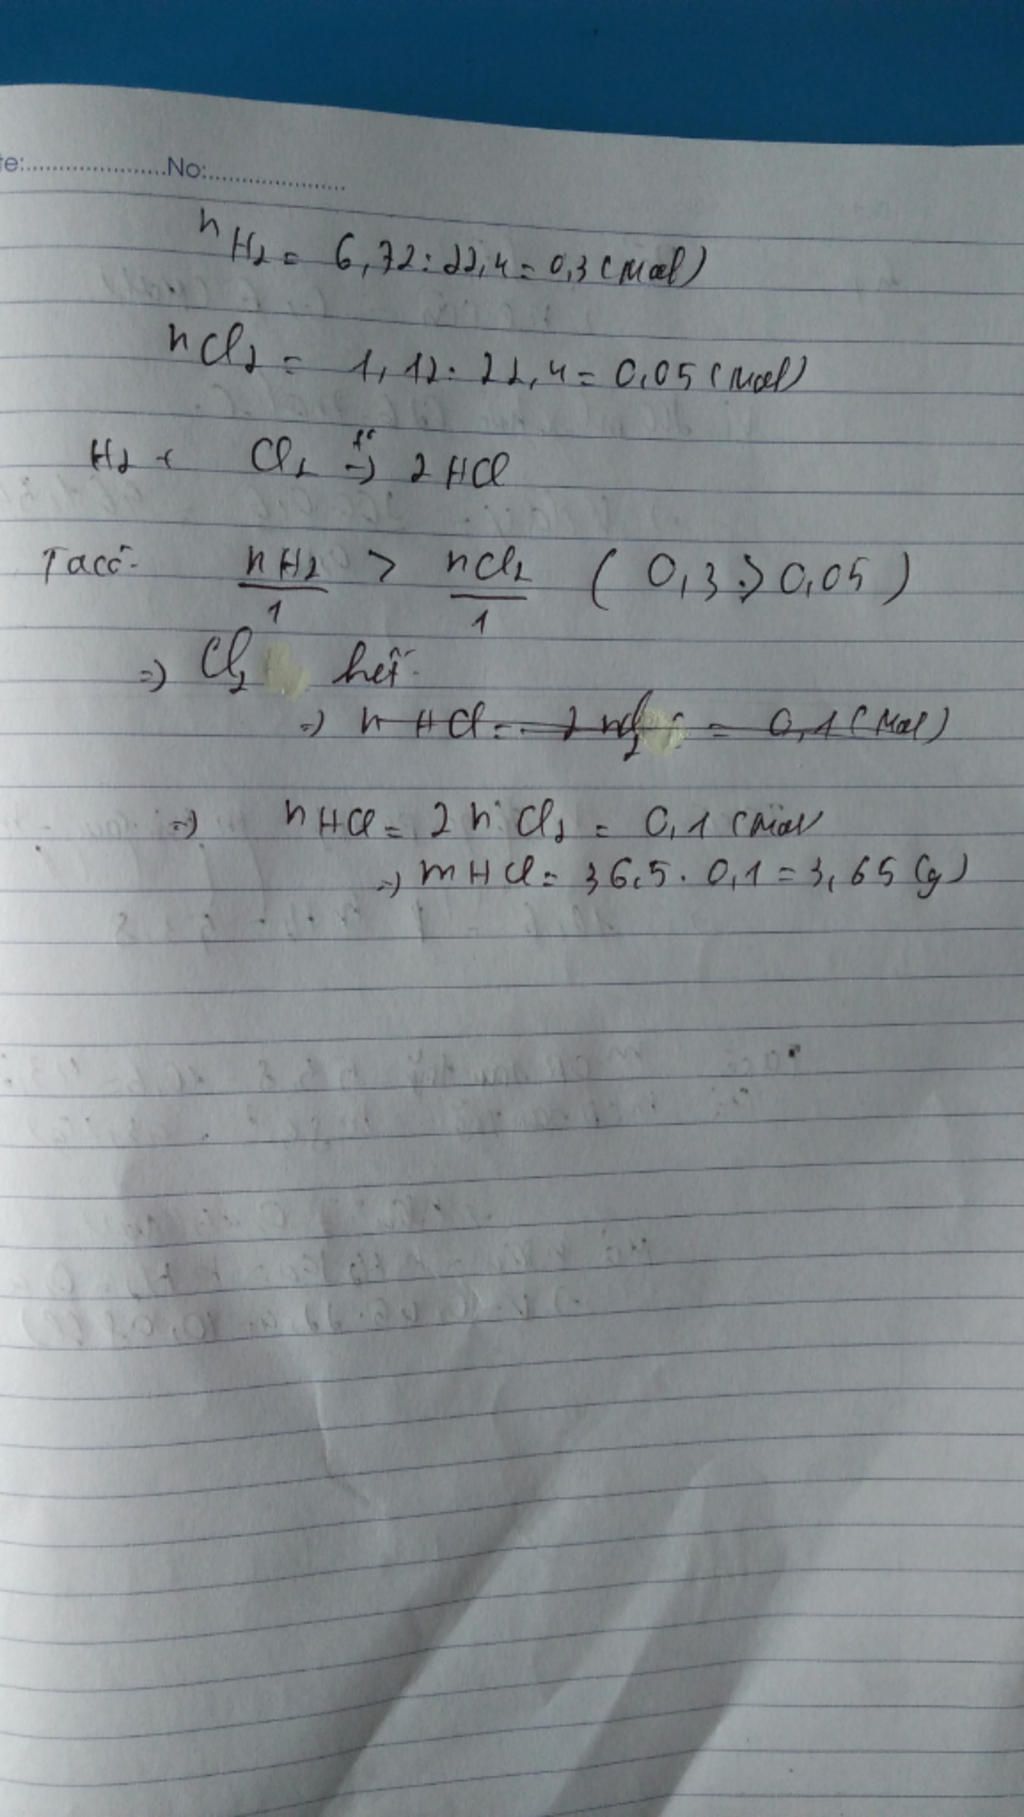 te:.....................No:.....................
nH₂ = 6,72 : 22,4 = 0,3 (mol)
nCl₂ = 1,12 : 22,4 = 0,05 (mol)
H₂ + Cl₂ t° → 2HCl
Ta có: nH₂/1 > nCl₂/1 (0,3 > 0,05)
=) Cl₂ hết
=) nHCl = 2nCl₂ = 0,1 (mol)
=) nHCl = 2nCl₂ = 0,1 (mol
=) mHCl = 36,5 . 0,1 = 3,65 (g)